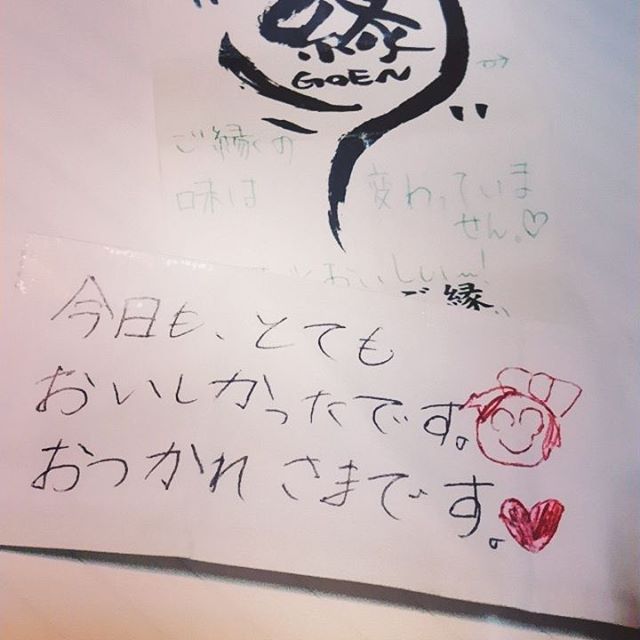 縁
GOEN
ご縁の
味は 変わっていま
せん。♡
おいしい〜!
ご縁
今日も、とても
おいしかったです。
おつかれさまです。